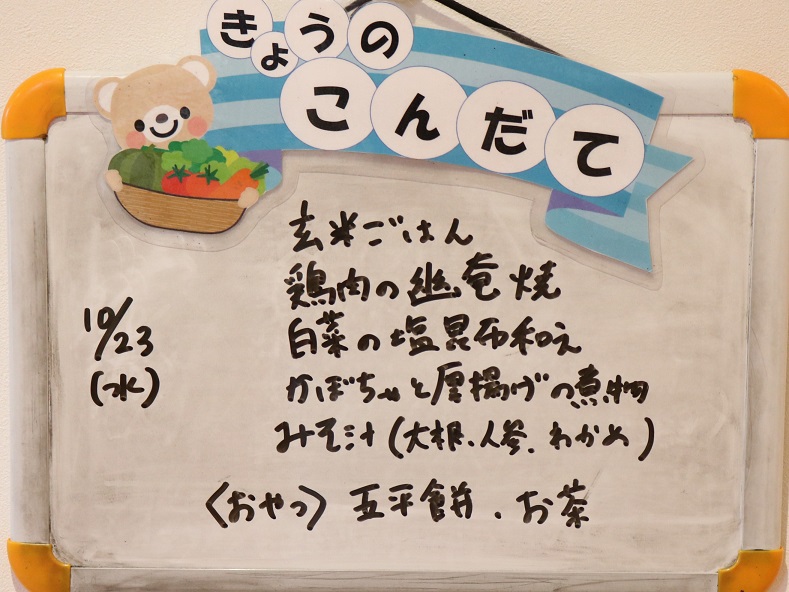 きょうの
こんだて
玄米ごはん
鶏肉の幽奄焼
10/23
(水)
白菜の塩昆布和え
かぼちゃと厚揚げの煮物
みそ汁(大根、人参、わかめ)
〈おやつ〉 五平餅、お茶